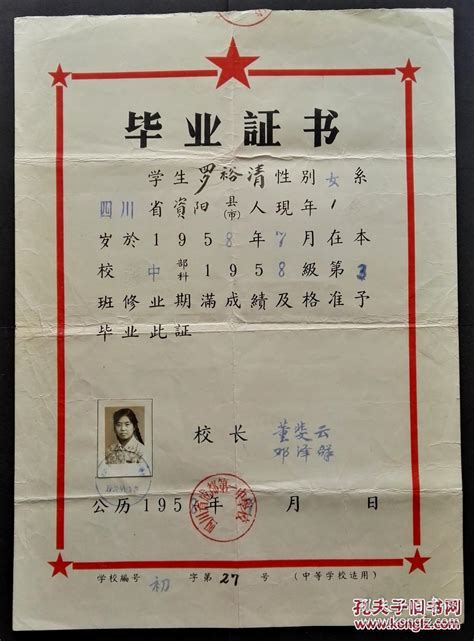 毕业証书
学生罗裕清性别女系
四川省資阳县(市)人現年1
岁於1958年7月在本
校中部科1958級第3
班修业期滿成績及格准予
毕业此証
校长
邓泽
公历195 年 月 日
第一中学校
学校編号 初 字第27号 (中等学校适用)
孔夫子旧书网
www.kongfz.com